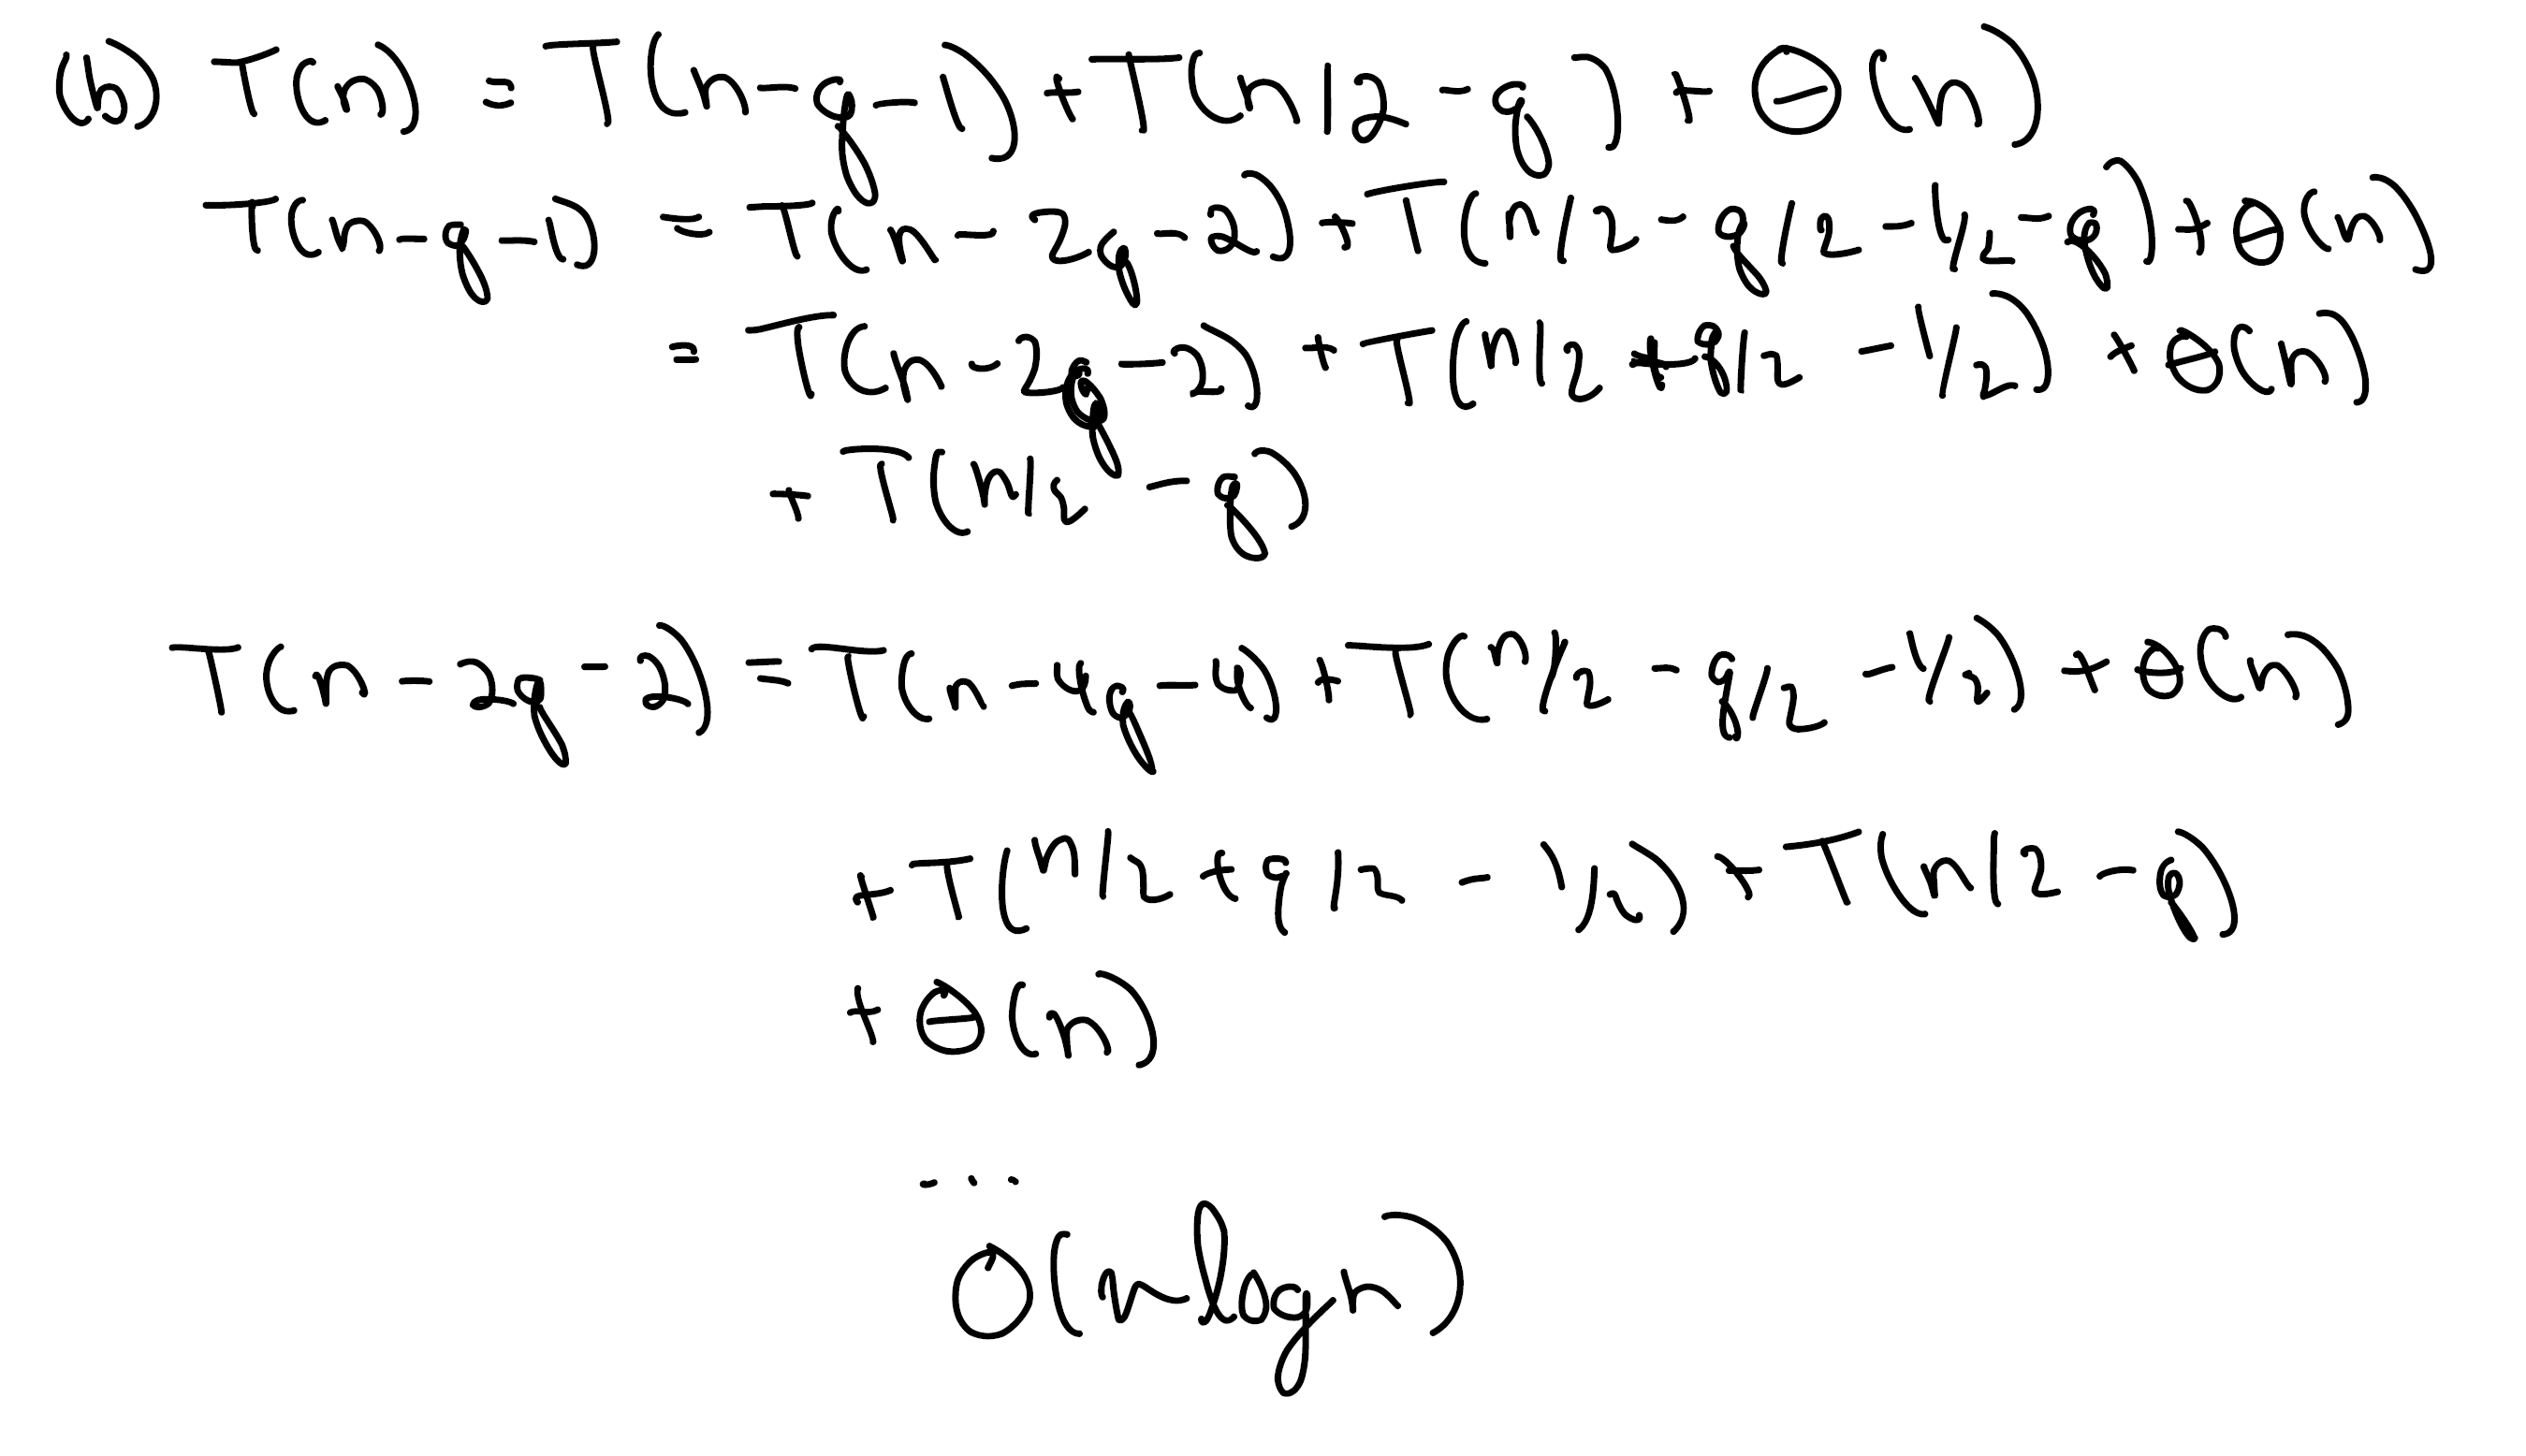 (b) T(n) = T(n-q-1) + T(n/2 - q) + Θ(n)
T(n-q-1) = T(n - 2q - 2) + T(n/2 - q/2 - 1/2 - q) + Θ(n)
= T(n - 2q - 2) + T(n/2 + q/2 - 1/2) + Θ(n)
+ T(n/2 - q)
T(n - 2q - 2) = T(n - 4q - 4) + T(n/2 - q/2 - 1/2) + Θ(n)
+ T(n/2 + q/2 - 1/2) + T(n/2 - q)
+ Θ(n)
...
O(n log n)